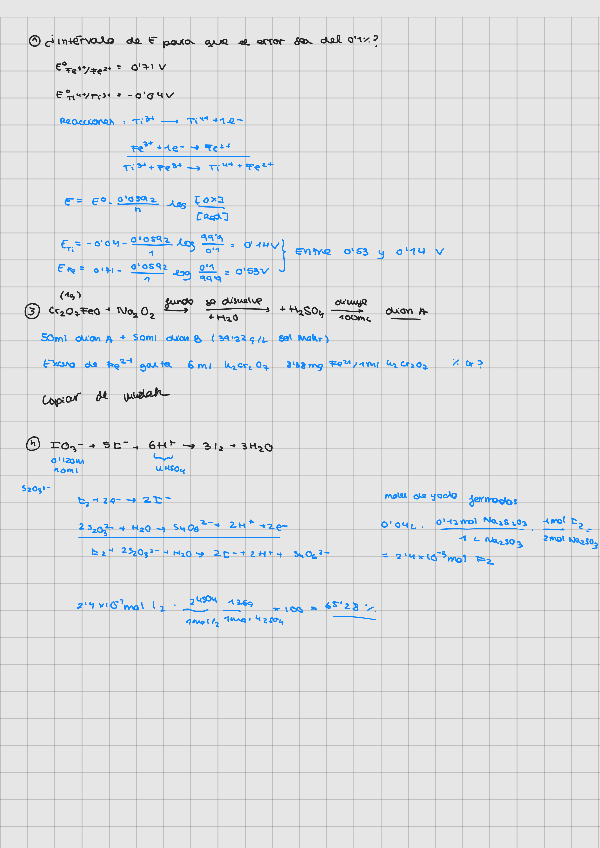 ① ¿intervalo de E para que el error sea del 0'1%?
E° Fe³⁺/Fe²⁺ = 0'71 V
E° Ti⁴⁺/Ti³⁺ = -0'04 V
Reacciones: Ti³⁺ → Ti⁴⁺ + 1e⁻
Fe³⁺ + 1e⁻ → Fe²⁺
Ti³⁺ + Fe³⁺ → Ti⁴⁺ + Fe²⁺
E = E° - 0'0592/n log [Ox]/[Red]
E Ti = -0'04 - 0'0592/1 log 99'9/0'1 = 0'14 V
E Fe = 0'71 - 0'0592/1 log 0'1/99'9 = 0'53 V
Entre 0'53 y 0'14 V
(1g)
③ Cr₂O₃FeO + Na₂O₂ fundo → se disuelve + H₂O → + H₂SO₄ diluye 100mL → dison A
50ml dison A + 50ml dison B (39'22 g/L sal Mohr)
Exceso de Fe²⁺ gasta 6 ml K₂Cr₂O₇ 8'38mg Fe²⁺/1ml K₂Cr₂O₇ % Cr?
Copiar de
④ IO₃⁻ + 5I⁻ + 6H⁺ → 3I₂ + 3H₂O
0'120M
40ml
H₂SO₄
S₂O₃²⁻
I₂ + 2e⁻ → 2I⁻
2S₂O₃²⁻ + H₂O → S₄O₆²⁻ + 2H⁺ + 2e⁻
I₂ + 2S₂O₃²⁻ + H₂O → 2I⁻ + 2H⁺ + S₄O₆²⁻
moles de yodo formados
0'04L · 0'12mol Na₂S₂O₃/1 L Na₂SO₃ · 1mol I₂/2mol Na₂SO₃ =
= 2'4×10⁻³ mol I₂
2'4×10⁻³ mol I₂ · × 100 = 65'28 %